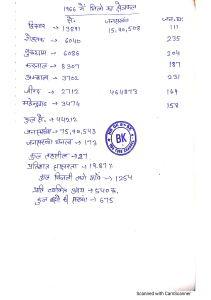 1966 में जिलों का क्षेत्रफल
क्षे. जनसंख्या जन.घ.
हिसार → 13891 15,40,508 111
रोहतक → 6040 235
गुड़गांव → 6086 204
करनाल → 8307 187
अम्बाला → 3702 231
जींद → 2712 464873 169
महेन्द्रगढ़ → 3474 158
कुल क्षे. → 44212
जनसंख्या → 75,90,543
जनसंख्या घनत्व → 172
कुल तहसील → 27
प्रतिशत साक्षरता → 19.87%
कुल बिजली लगे गाँव → 1254
प्रति व्यक्ति आय → 540 रू.
कुल की संख्या → 675
BK
Scanned with CamScanner